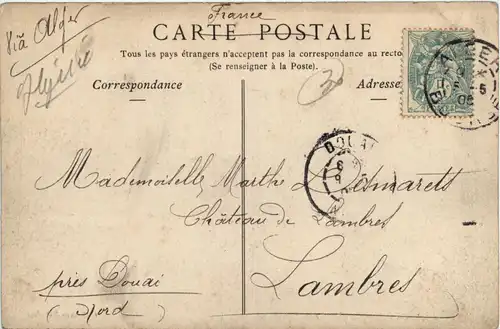 France
Viâ Alger
Algérie
CARTE POSTALE
Tous les pays étrangers n'acceptent pas la correspondance au recto
(Se renseigner à la Poste).
Correspondance
Adresse
30
DOUAI
Mademoiselle Marthe Desmarets
Château de Lambres
Lambres
près Douai
(Nord)